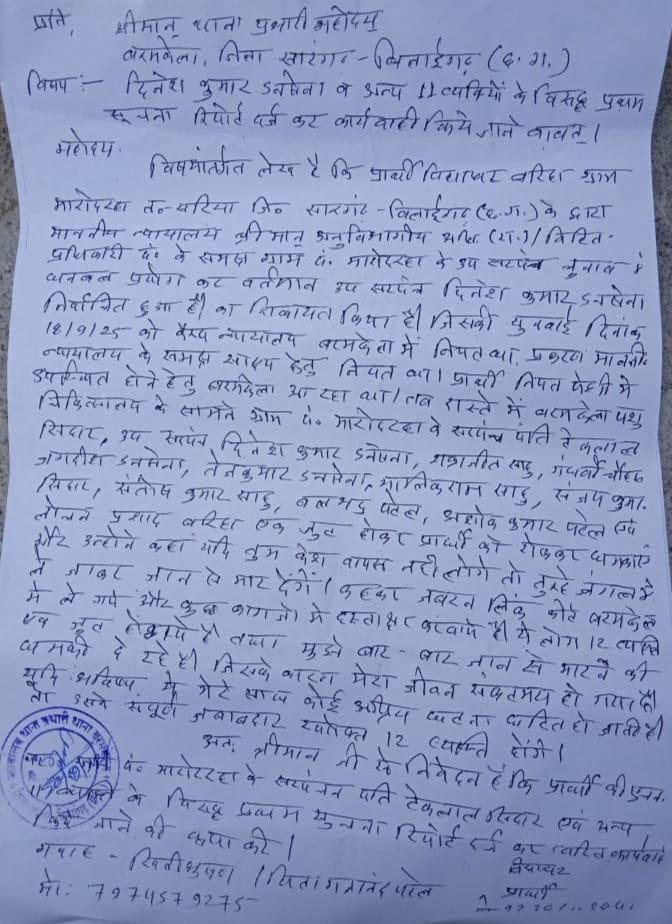 प्रति,
श्रीमान् थाना प्रभारी महोदय
बरमकेला, जिला सारंगढ़ - बिलाईगढ़ (छ.ग.)
विषय :- दिनेश कुमार डनसेना व अन्य 11 व्यक्तियों के विरुद्ध प्रथम
सूचना रिपोर्ट दर्ज कर कार्यवाही किये जाने बावत्।
महोदय,
विषयांतर्गत लेख है कि प्रार्थी विद्याधर बरिहा ग्राम
जि० सारंगढ़ - बिलाईगढ़ (छ.ग.) के द्वारा
माननीय न्यायालय श्रीमान् अनुविभागीय अधि० (रा.) / विहित
प्राधिकारी के समक्ष ग्राम पं. के उप सरपंच चुनाव में
धनबल प्रयोग कर वर्तमान उप सरपंच दिनेश कुमार डनसेना
निर्वाचित हुआ है। का शिकायत किया है। जिसकी सुनवाई दिनांक
18/9/25 को न्यायालय बरमकेला में नियत था, प्रकरण माननीय
न्यायालय के समक्ष साक्ष्य हेतु नियत था। प्रार्थी नियत पेशी में
उपस्थित होने हेतु बरमकेला आ रहा था। तब रास्ते में बरमकेला पशु
चिकित्सालय के सामने ग्राम पं. के सरपंच पति टेकलाल
सिदार, उप सरपंच दिनेश कुमार डनसेना, साहू,
जगदीश डनसेना, तेजकुमार डनसेना, मालिकराम साहू, संजय कुमार
सिदार, संतोष कुमार साहू, बलभद्र पटेल, अशोक कुमार पटेल एवं
लोचन प्रसाद बरिहा एक जुट होकर प्रार्थी को रोककर धमकाये
और उन्होंने कहा यदि तुम केश वापस नहीं लोगे तो तुम्हे जंगल में
ले जाकर जान से मार देंगे। कहकर जबरन लिंक कोर्ट बरमकेला
में ले गये और कुछ कागजो में हस्ताक्षर करवाये है। ये लोग 12 व्यक्ति
एक जुट तथा मुझे बार-बार जान से मारने की
धमकी दे रहे है। जिसके कारण मेरा जीवन संकटमय हो गया है।
यदि भविष्य में मेरे साथ कोई अप्रिय घटना घटित हो जाती है।
तो उसके संपूर्ण जवाबदार उपरोक्त 12 व्यक्ति होंगे।
अतः श्रीमान जी से निवेदन है कि प्रार्थी की
पं. के सरपंच पति टेकलाल सिदार एवं अन्य
के विरुद्ध प्रथम सूचना रिपोर्ट दर्ज कर त्वरित कार्यवाही
किये जाने की कृपा करें।
गवाह -
मो: 7974579275
विद्याधर
प्रार्थी